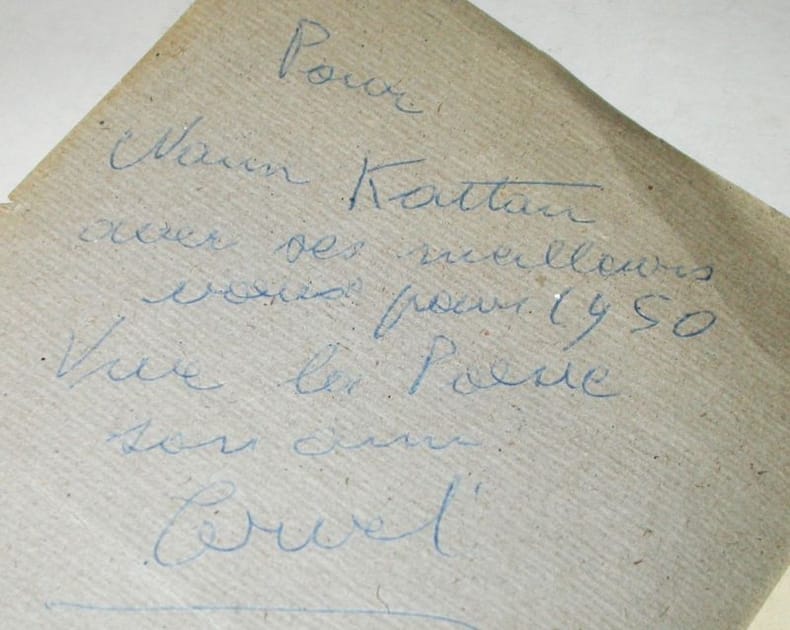 Pour
Naim Kattan
avec ses meilleurs
voeux pour 1950
Vive la Poésie
son ami